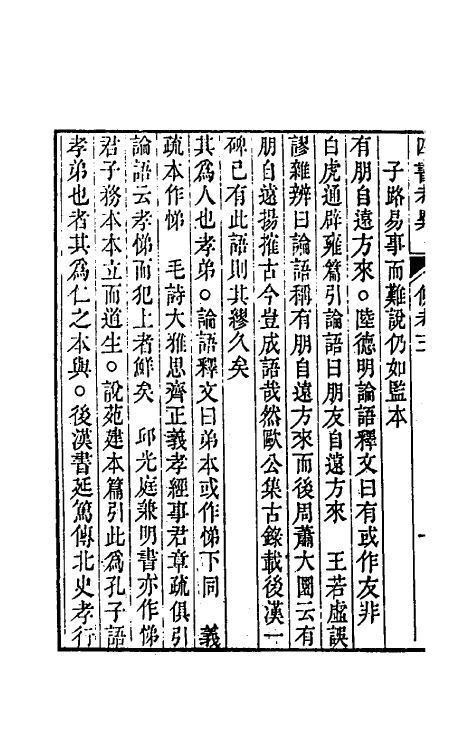 子路易事而難說仍如監本
有朋自遠方來○陸德明論語釋文曰有或作友非
白虎通辟雍篇引論語曰朋友自遠方來　王若虛誤
謬雜辨曰論語稱有朋自遠方來而後周蕭大圜云有
朋自遠揚搉古今豈成語哉然歐公集古錄載後漢一
碑已有此語則其繆久矣
其爲人也孝弟○論語釋文曰弟本或作悌下同　義
疏本作悌　毛詩大雅思齊正義孝經事君章疏俱引
論語云孝悌而犯上者鮮矣　邱光庭兼明書亦作悌
君子務本本立而道生○說苑建本篇引此爲孔子語
孝弟也者其爲仁之本與○後漢書延篤傳北史孝行